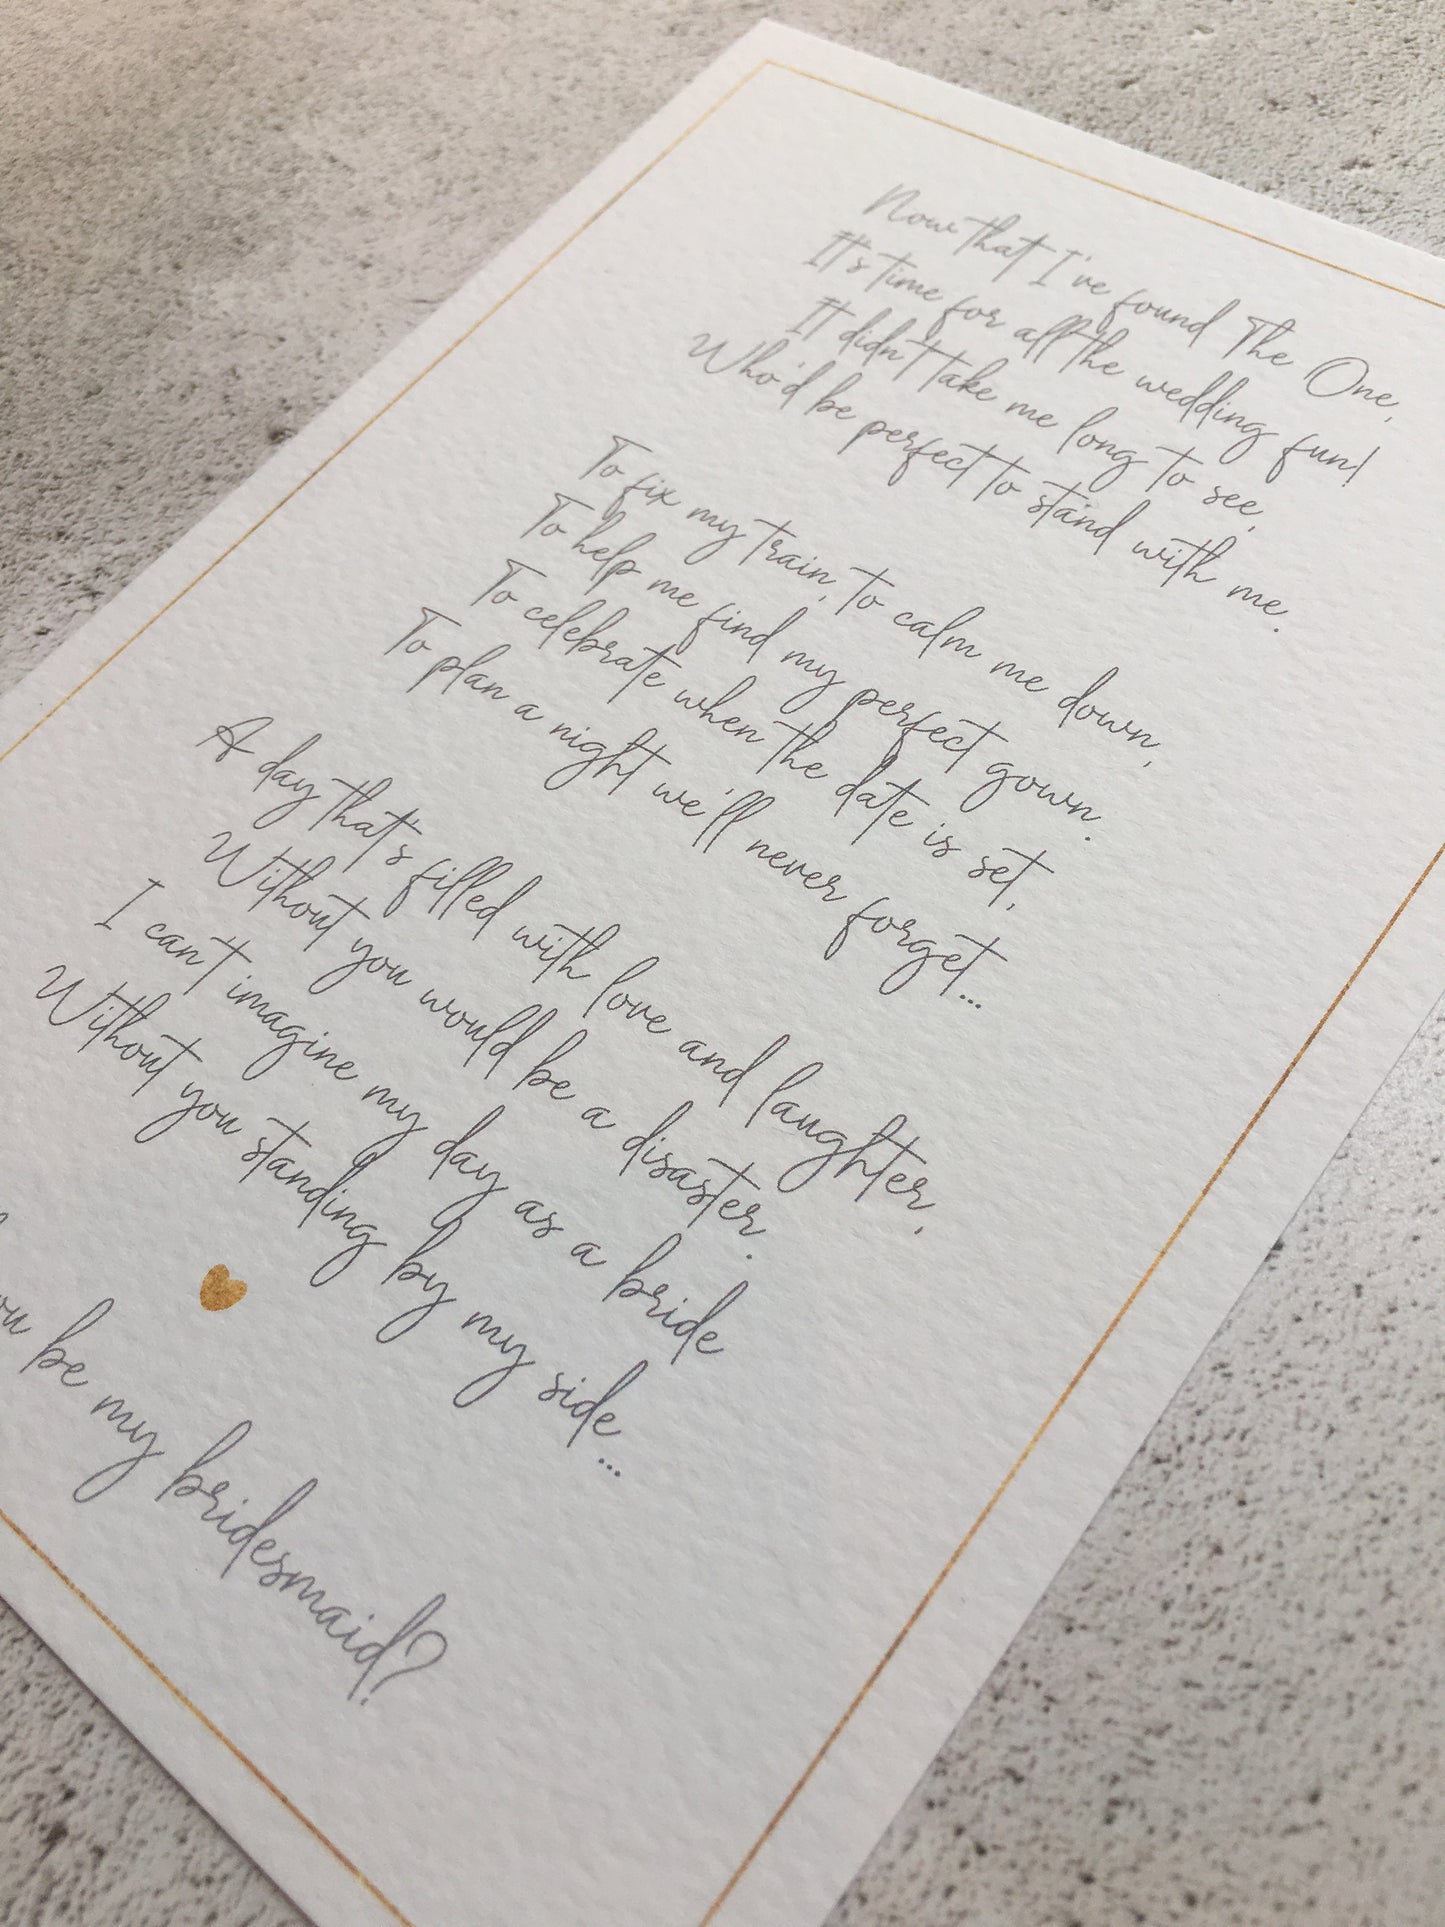 Now that I've found The One,
It's time for all the wedding fun!
It didn't take me long to see,
Who'd be perfect to stand with me.
To fix my train, to calm me down,
To help me find my perfect gown.
To celebrate when the date is set,
To plan a night we'll never forget...
A day that's filled with love and laughter,
Without you would be a disaster.
I can't imagine my day as a bride
Without you standing by my side...
be my bridesmaid?